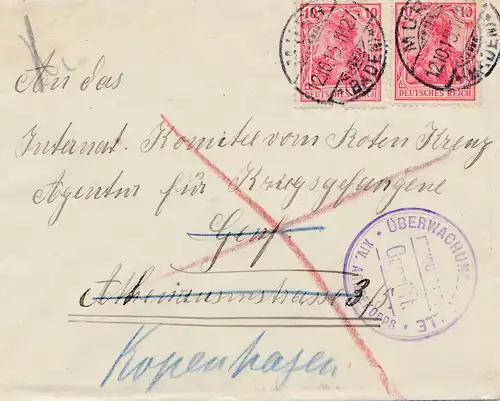 10 10
DEUTSCHES REICH DEUTSCHES REICH
12.10.15 12.10.15
(BADEN) (BADEN)
An das
Internat. Komitee vom Roten Kreuz
Agentur für Kriegsgefangene
Genf.
3
Kopenhagen
ÜBERWACHUNGS
XIV. A
Geprüft